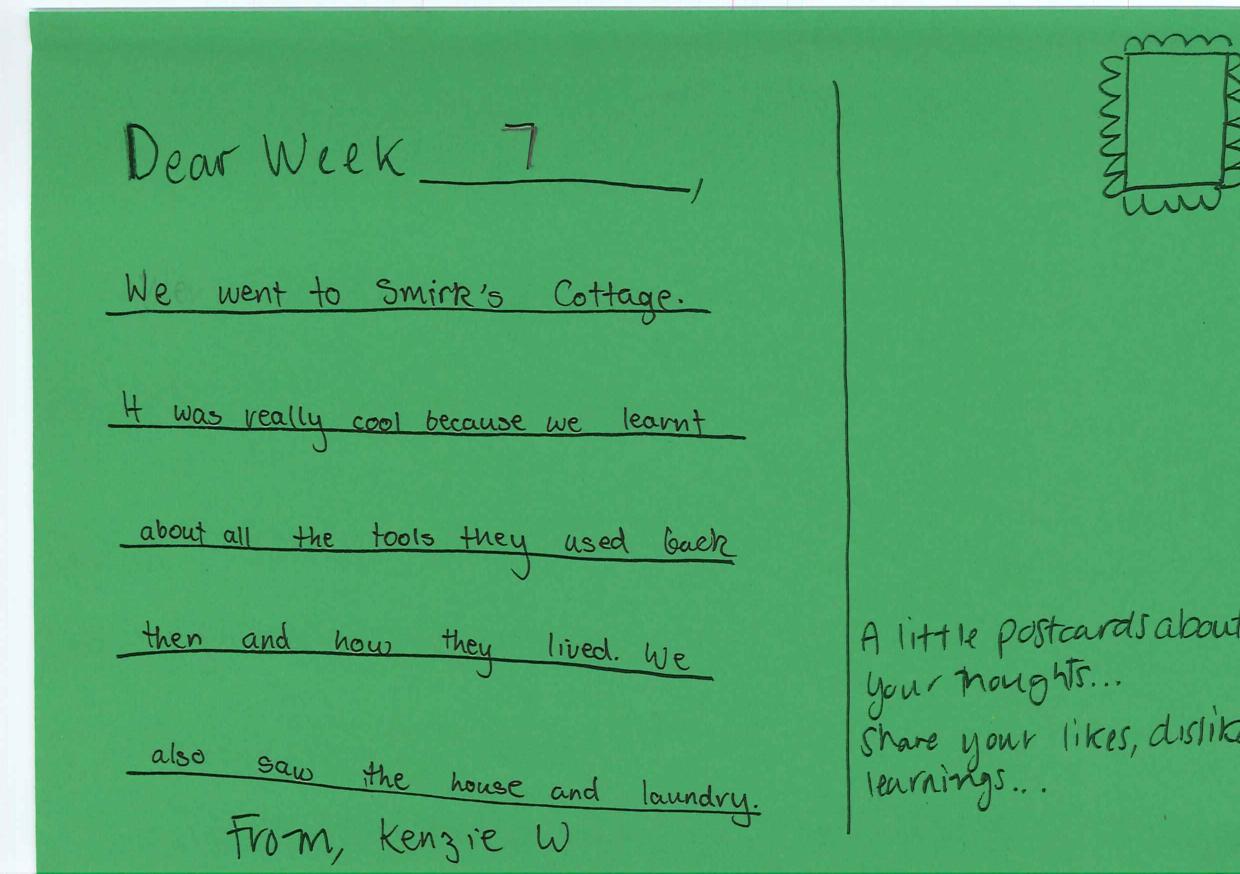 Dear Week 7,
We went to Smirk's Cottage.
It was really cool because we learnt
about all the tools they used back
then and how they lived. We
also saw the house and laundry.
From, Kenzie W
A little postcards about
your thoughts...
Share your likes, dislik
learnings...